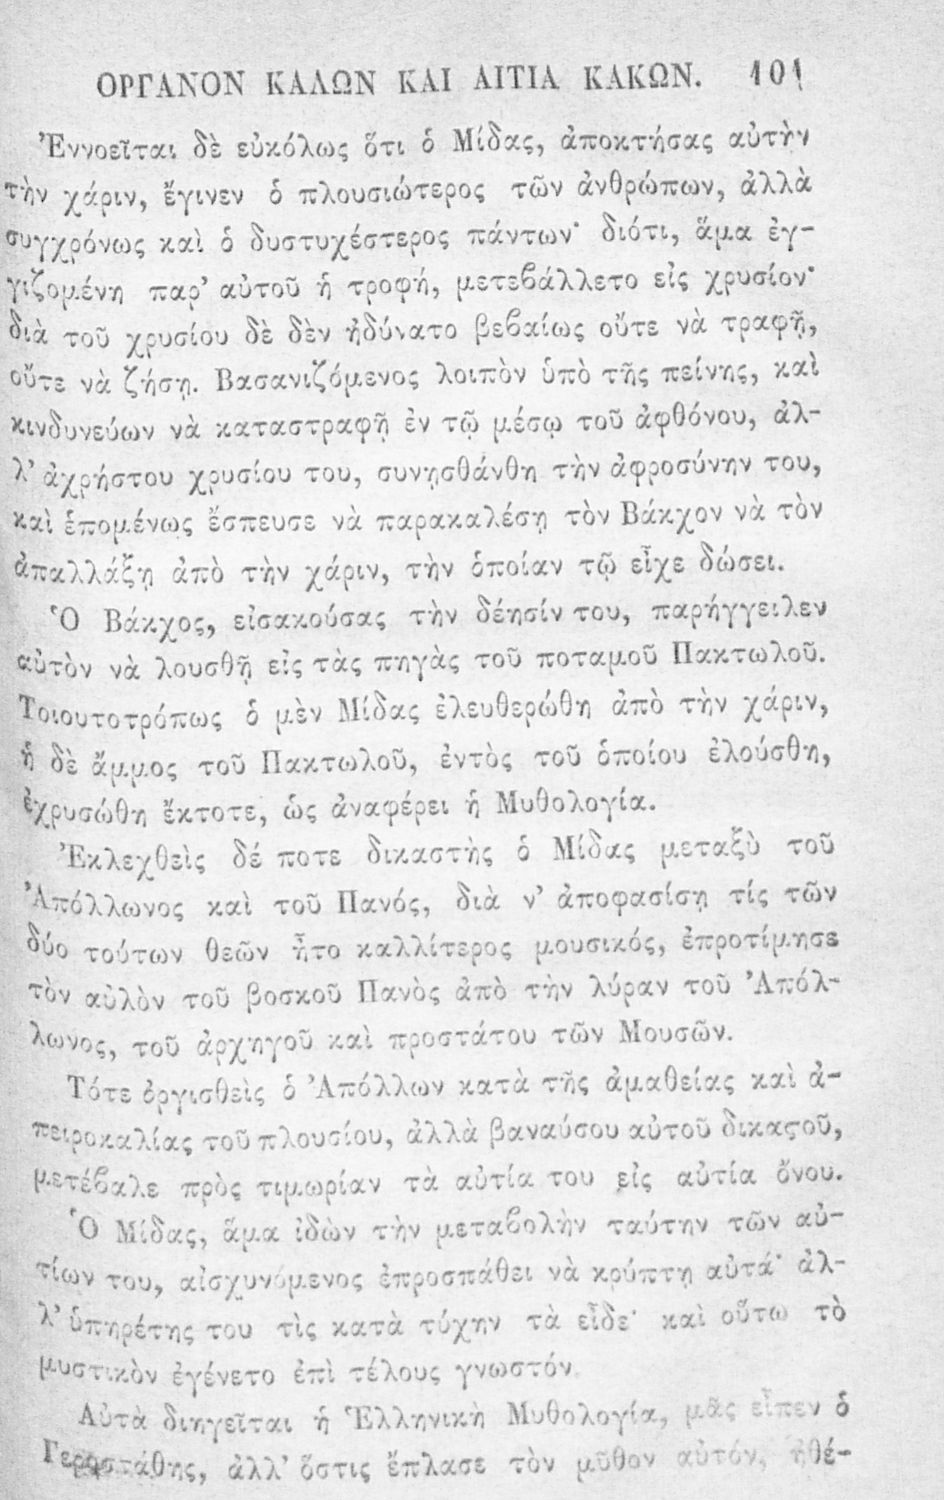 ΟΡΓΑΝΟΝ ΚΑΛΩΝ ΚΑΙ ΑΙΤΙΑ ΚΑΚΩΝ. 101
Ἐννοεῖται δὲ εὐκόλως ὅτι ὁ Μίδας, ἀποκτήσας αὐτὴν
τὴν χάριν, ἔγινεν ὁ πλουσιώτερος τῶν ἀνθρώπων, ἀλλὰ
συγχρόνως καὶ ὁ δυστυχέστερος πάντων· διότι, ἅμα ἐγ-
γιζομένη παρ’ αὐτοῦ ἡ τροφή, μετεβάλλετο εἰς χρυσίον·
διὰ τοῦ χρυσίου δὲ δὲν ἠδύνατο βεβαίως οὔτε νὰ τραφῇ,
οὔτε νὰ ζήσῃ. Βασανιζόμενος λοιπὸν ὑπὸ τῆς πείνης, καὶ
κινδυνεύων νὰ καταστραφῇ ἐν τῷ μέσῳ τοῦ ἀφθόνου, ἀλ-
λ’ ἀχρήστου χρυσίου του, συνῃσθάνθη τὴν ἀφροσύνην του,
καὶ ἑπομένως ἔσπευσε νὰ παρακαλέσῃ τὸν Βάκχον νὰ τὸν
ἀπαλλάξῃ ἀπὸ τὴν χάριν, τὴν ὁποίαν τῷ εἶχε δώσει.
Ὁ Βάκχος, εἰσακούσας τὴν δέησίν του, παρήγγειλεν
αὐτὸν νὰ λουσθῇ εἰς τὰς πηγὰς τοῦ ποταμοῦ Πακτωλοῦ.
Τοιουτοτρόπως ὁ μὲν Μίδας ἐλευθερώθη ἀπὸ τὴν χάριν,
ἡ δὲ ἄμμος τοῦ Πακτωλοῦ, ἐντὸς τοῦ ὁποίου ἐλούσθη,
ἐχρυσώθη ἔκτοτε, ὡς ἀναφέρει ἡ Μυθολογία.
Ἐκλεχθεὶς δέ ποτε δικαστὴς ὁ Μίδας μεταξὺ τοῦ
Ἀπόλλωνος καὶ τοῦ Πανός, διὰ ν’ ἀποφασίσῃ τίς τῶν
δύο τούτων θεῶν ἦτο καλλίτερος μουσικός, ἐπροτίμησε
τὸν αὐλὸν τοῦ βοσκοῦ Πανὸς ἀπὸ τὴν λύραν τοῦ Ἀπόλ-
λωνος, τοῦ ἀρχηγοῦ καὶ προστάτου τῶν Μουσῶν.
Τότε ὀργισθεὶς ὁ Ἀπόλλων κατὰ τῆς ἀμαθείας καὶ ἀ-
πειροκαλίας τοῦ πλουσίου, ἀλλὰ βαναύσου αὐτοῦ δικαϛοῦ,
μετέβαλε πρὸς τιμωρίαν τὰ αὐτία του εἰς αὐτία ὄνου.
Ὁ Μίδας, ἅμα ἰδὼν τὴν μεταβολὴν ταύτην τῶν αὐ-
τίων του, αἰσχυνόμενος ἐπροσπάθει νὰ κρύπτῃ αὐτά· ἀλ-
λ’ ὑπηρέτης του τὶς κατὰ τύχην τὰ εἶδε· καὶ οὕτω τὸ
μυστικὸν ἐγένετο ἐπὶ τέλους γνωστόν.
Αὐτὰ διηγεῖται ἡ Ἑλληνικὴ Μυθολογία, μᾶς εἶπεν ὁ
Γεροστάθης, ἀλλ’ ὅστις ἔπλασε τὸν μῦθον αὐτόν, ἠθέ-